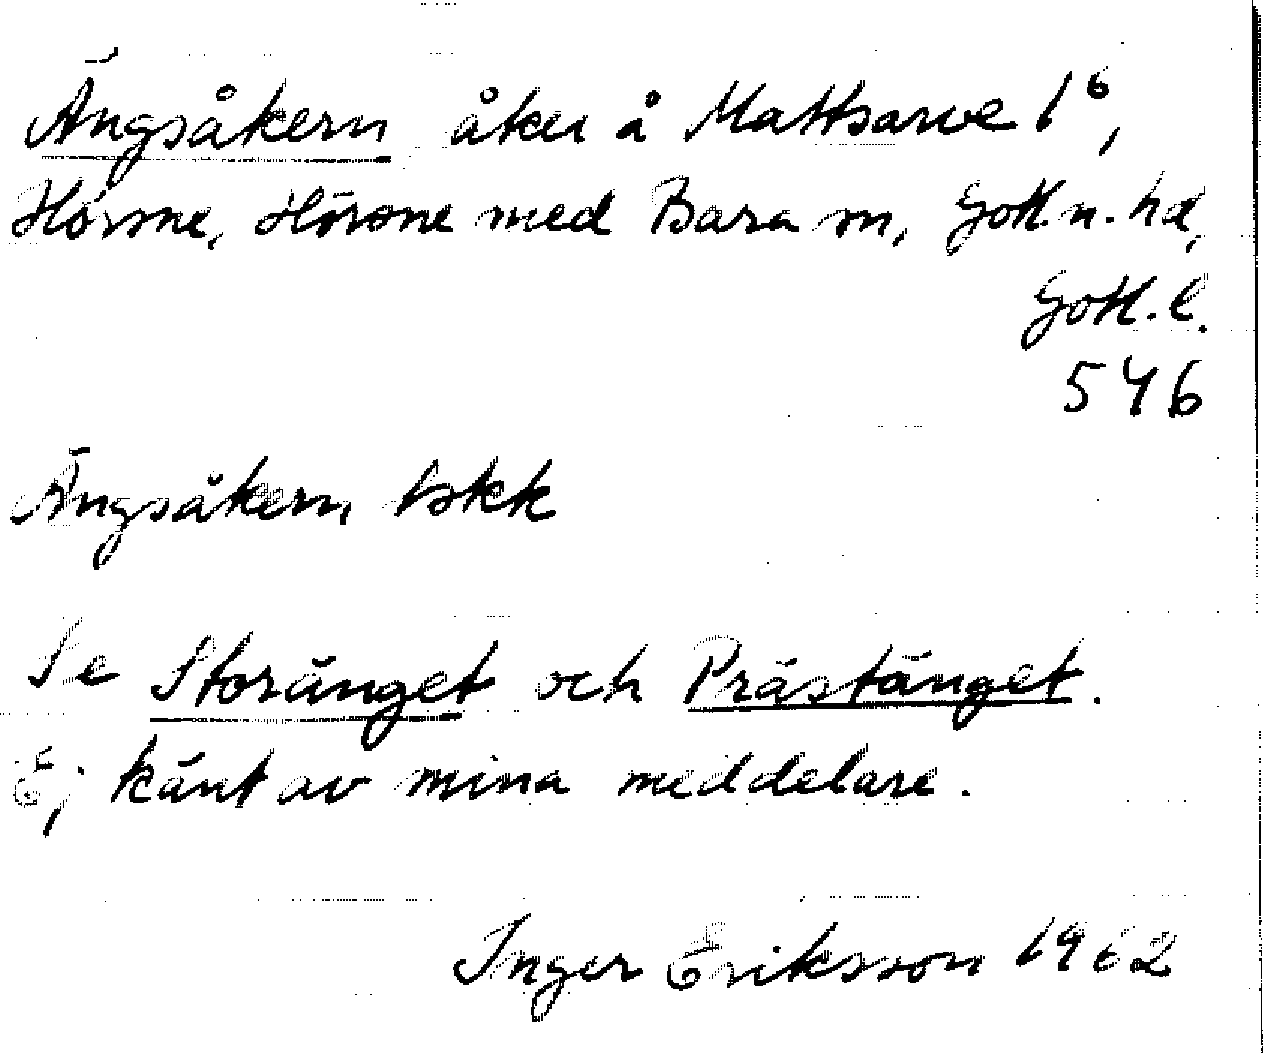 Ängsåkern åker å Mattsarve 1⁶,
Hörsne, Hörsne med Bara sn, Gotl. n. hd,
Gotl. l.
546
Ängsåkern bskk
Se Storänget och Prästänget.
Ej känt av mina meddelare.
Inger Eriksson 1962